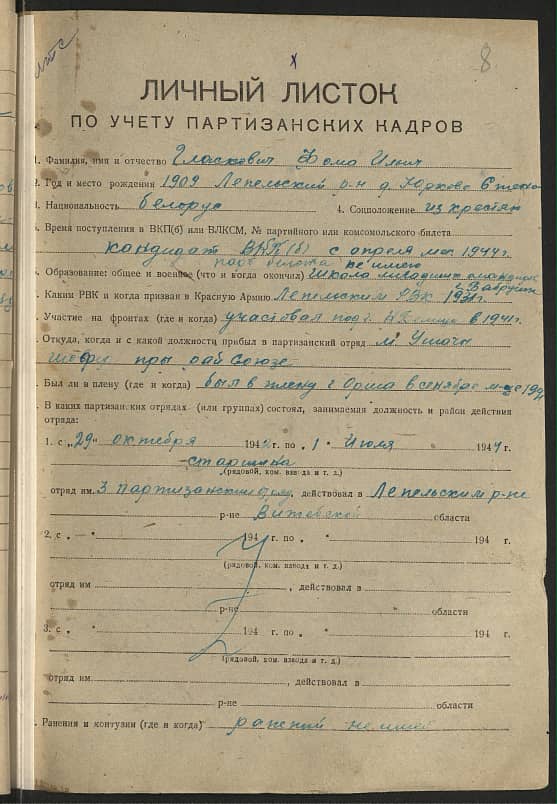 8
ЛИЧНЫЙ ЛИСТОК
ПО УЧЕТУ ПАРТИЗАНСКИХ КАДРОВ
1. Фамилия, имя и отчество Гласкович Фома Ильич
2. Год и место рождения 1909 Лепельский р-н д.
3. Национальность белорус 4. Соцположение из крестян
. Время поступления в ВКП(б) или ВЛКСМ, № партийного или комсомольского билета
кандидат ВКП(б) с апреля 1944 г.
парт билета не имею
. Образование: общее и военное (что и когда окончил) Школа младших
. Каким РВК и когда призван в Красную Армию Лепельским РВК 1931 г.
. Участие на фронтах (где и когда) участвовал под г. в 1941 г.
. Откуда, когда и с какой должности прибыл в партизанский отряд м. Ушачи
при рай Союзе
. Был ли в плену (где и когда) был в плену г Орша в сентябре
. В каких партизанских отрядах (или группах) состоял, занимаемая должность и район действия
отряда:
1. с „29" октября 1942 г. по „1" Июля 1944 г.
старшина
(рядовой, ком. взвода и т. д.)
отряд им. 3 партизанский, действовал в Лепельским р-не
р-не Витебской области
2. с „ " 194 г. по „ " 194 г.
(рядовой, ком. взвода и т. д.)
отряд им , действовал в
р-не области
3. с „ " 194 г. по „ " 194 г.
(рядовой, ком. взвода и т. д.)
отряд им , действовал в
р-не области
. Ранения и контузии (где и когда) ранений не имел